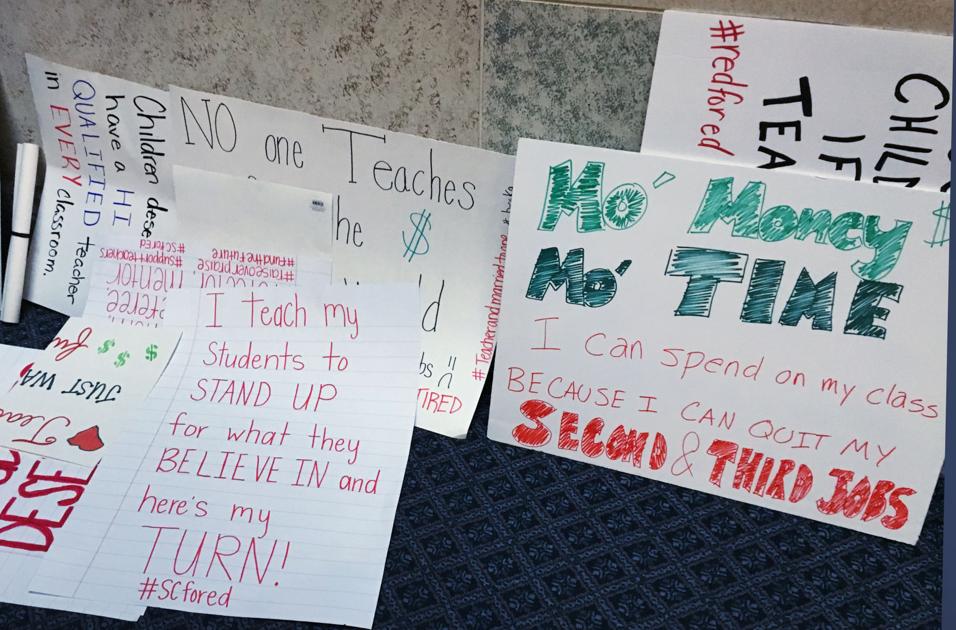 Children dese
have a HI
QUALIFIED teacher
in EVERY classroom.
NO one Teaches
he $
d
bs
TIRED
#Teacherandmarriedtoone
#raiseoverpraise
#Fundthefuture
#supportteachers
#SCfored
mentor
referee
I Teach my
Students to
STAND UP
for what they
BELIEVE IN and
here's my
TURN!
#SCfored
$ $ $
JUST WA
Tea
DESE
#redfored
CHILD
IF
TEA
Mo' Money $
Mo' TIME
I can spend on my class
BECAUSE I CAN QUIT MY
SECOND & THIRD JOBS